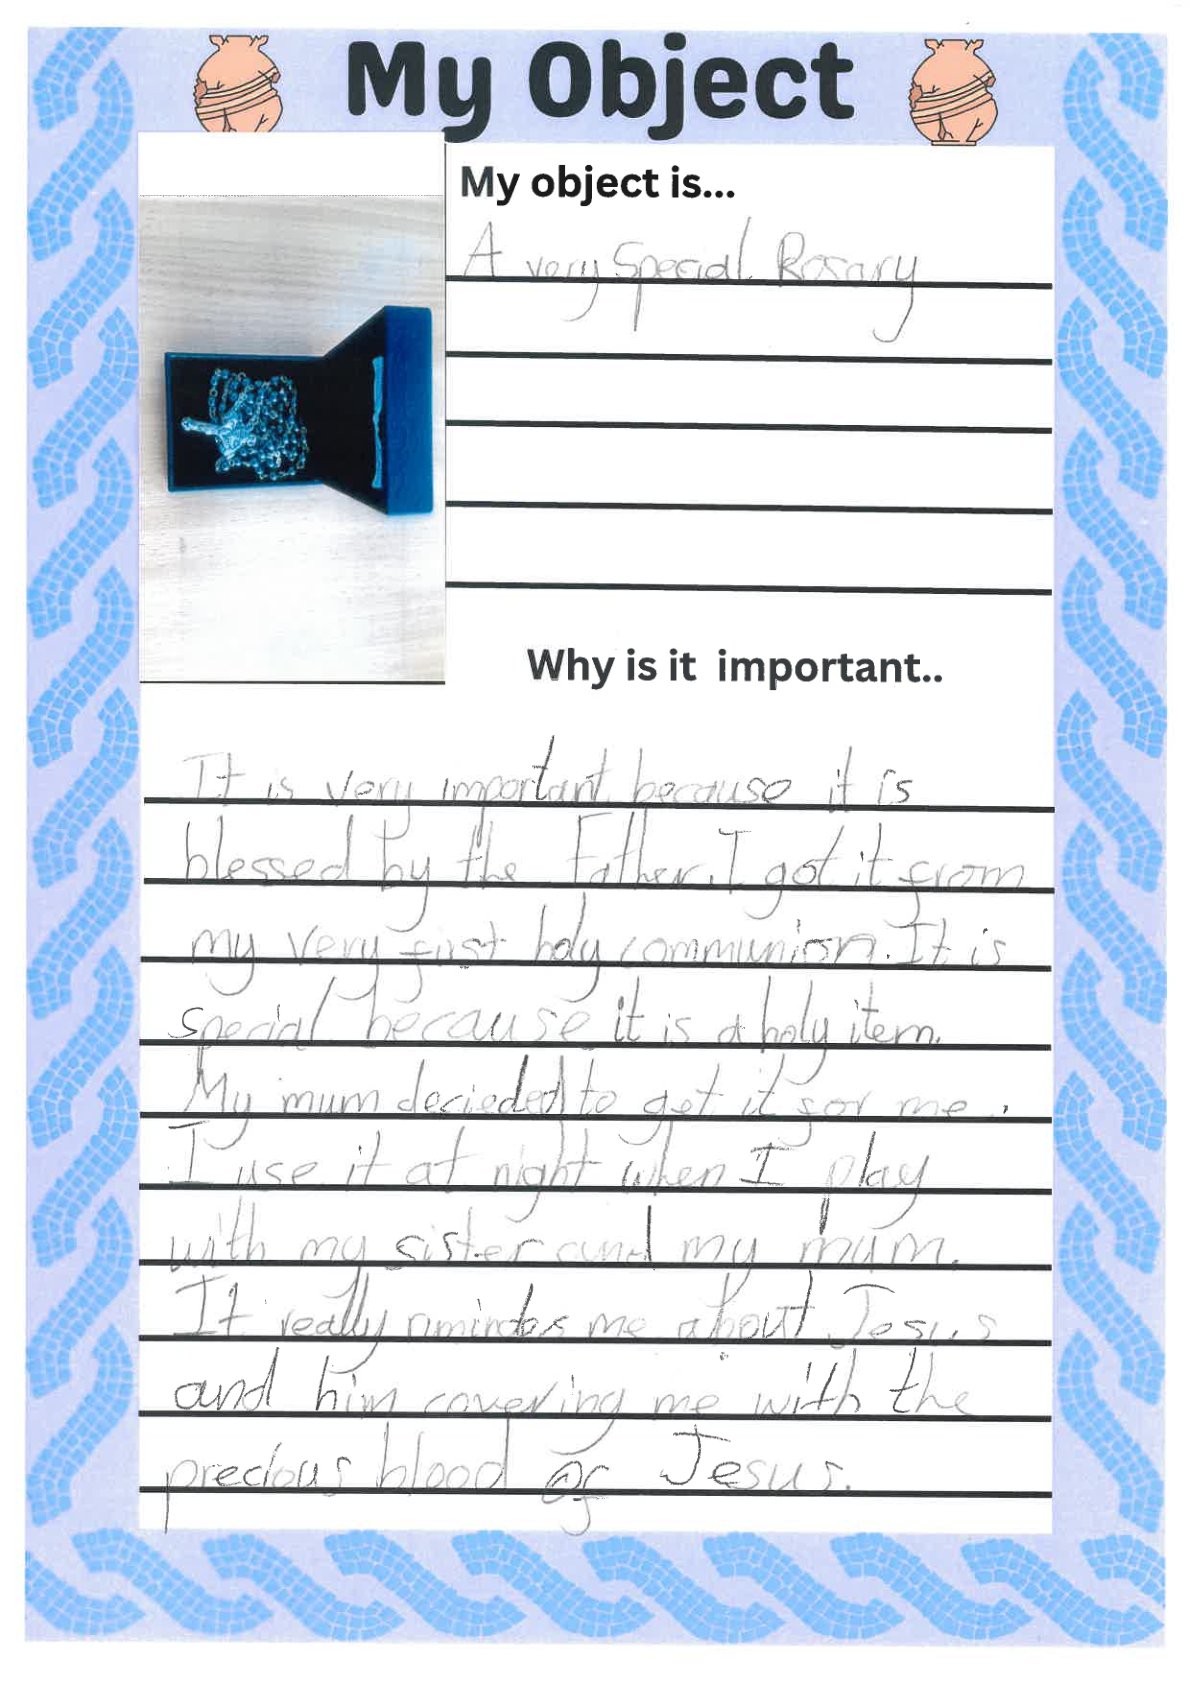 My Object
My object is...
A very Special Rosary
Why is it important..
It is very important because it is
blessed by the Father. I got it from
my very first holy communion. It is
special because it is a holy item.
My mum decieded to get it for me.
I use it at night when I play
with my sister and my mum.
It really me about Jesus
and him covering me with the
precious blood of Jesus.